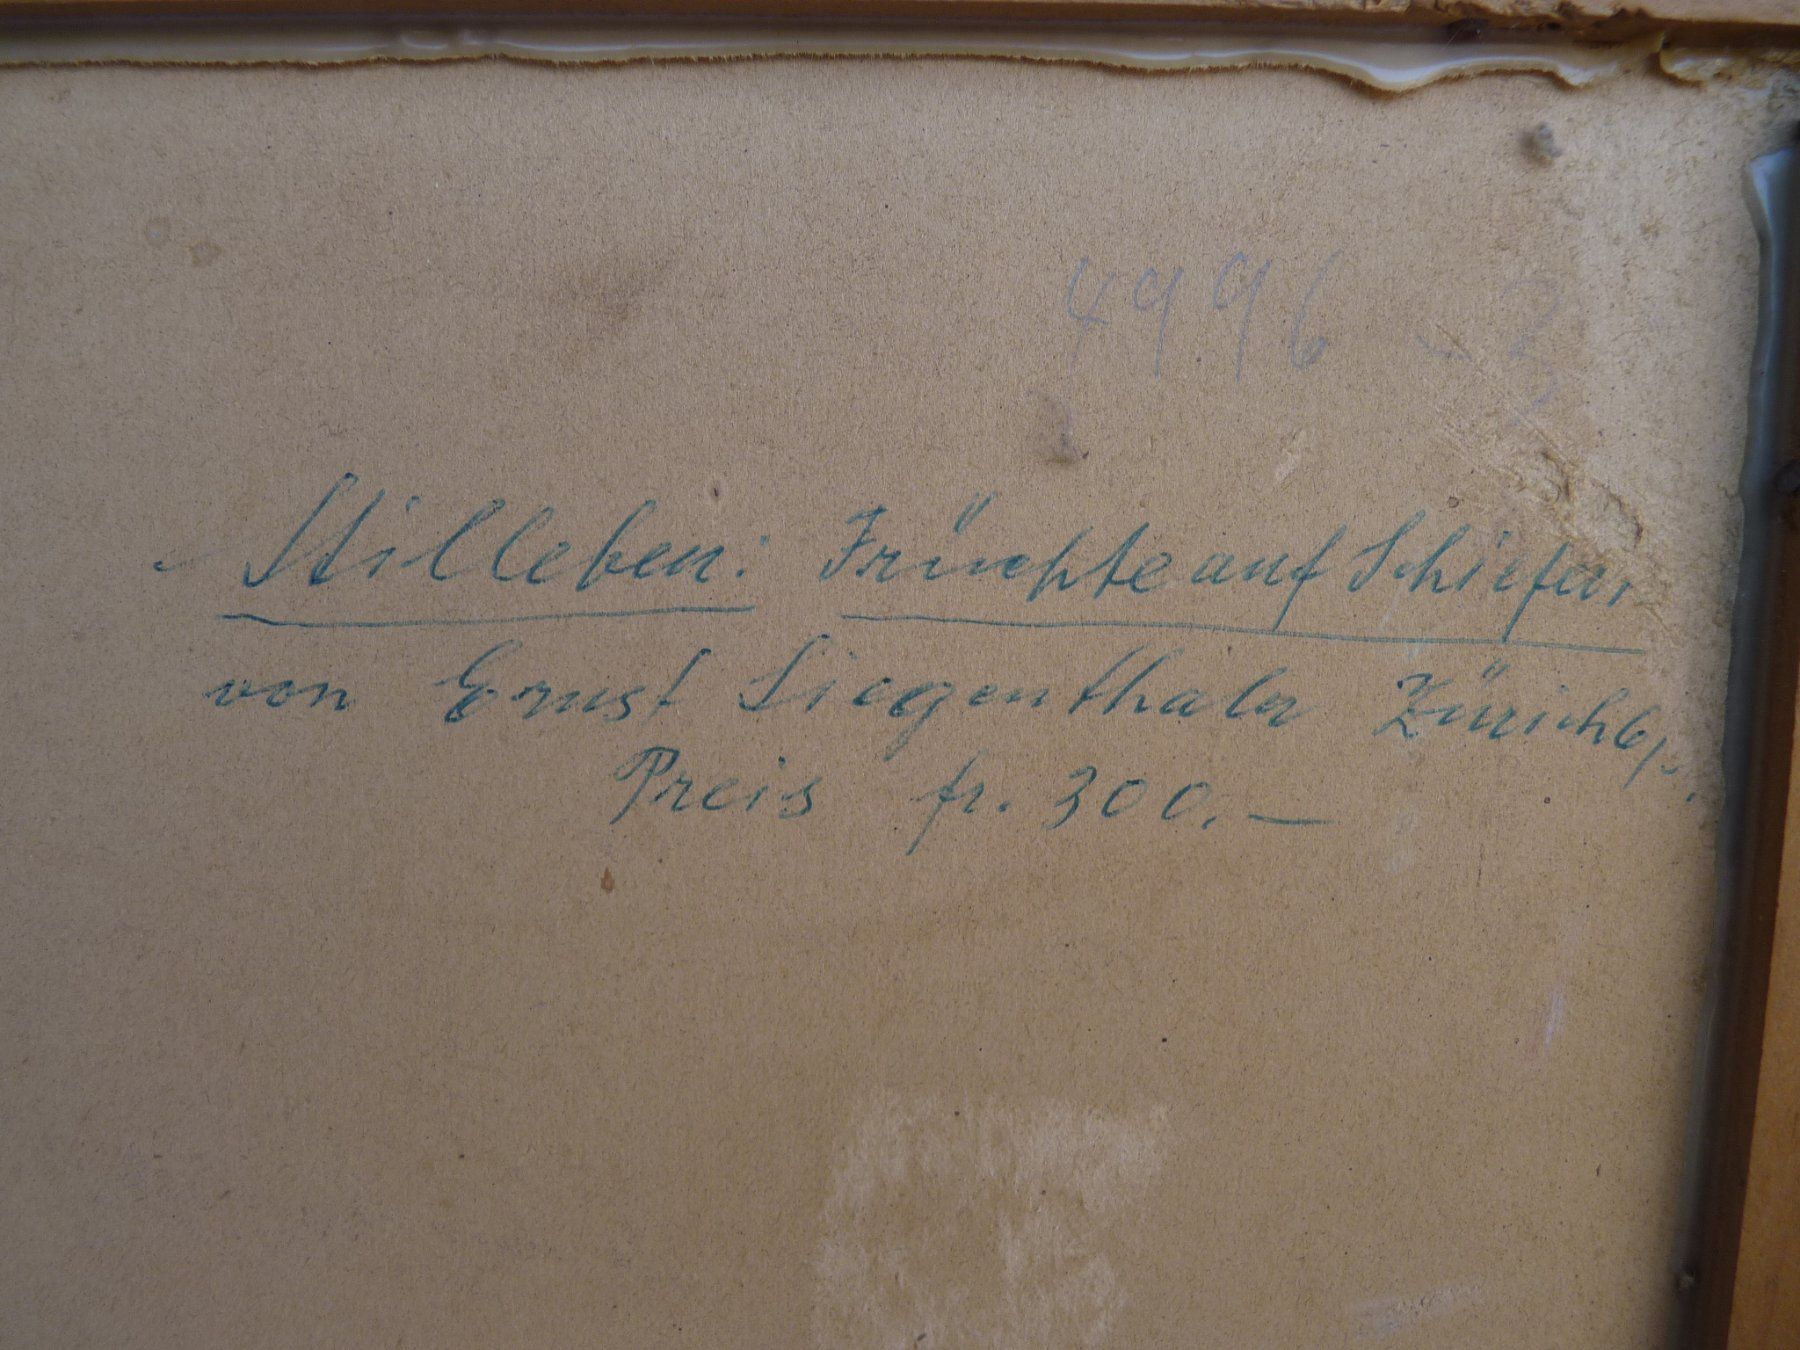 4996 - 3
Stilleben: Früchte auf Schiefer
von Ernst Siegenthaler Zürich 6/
Preis fr. 300.—